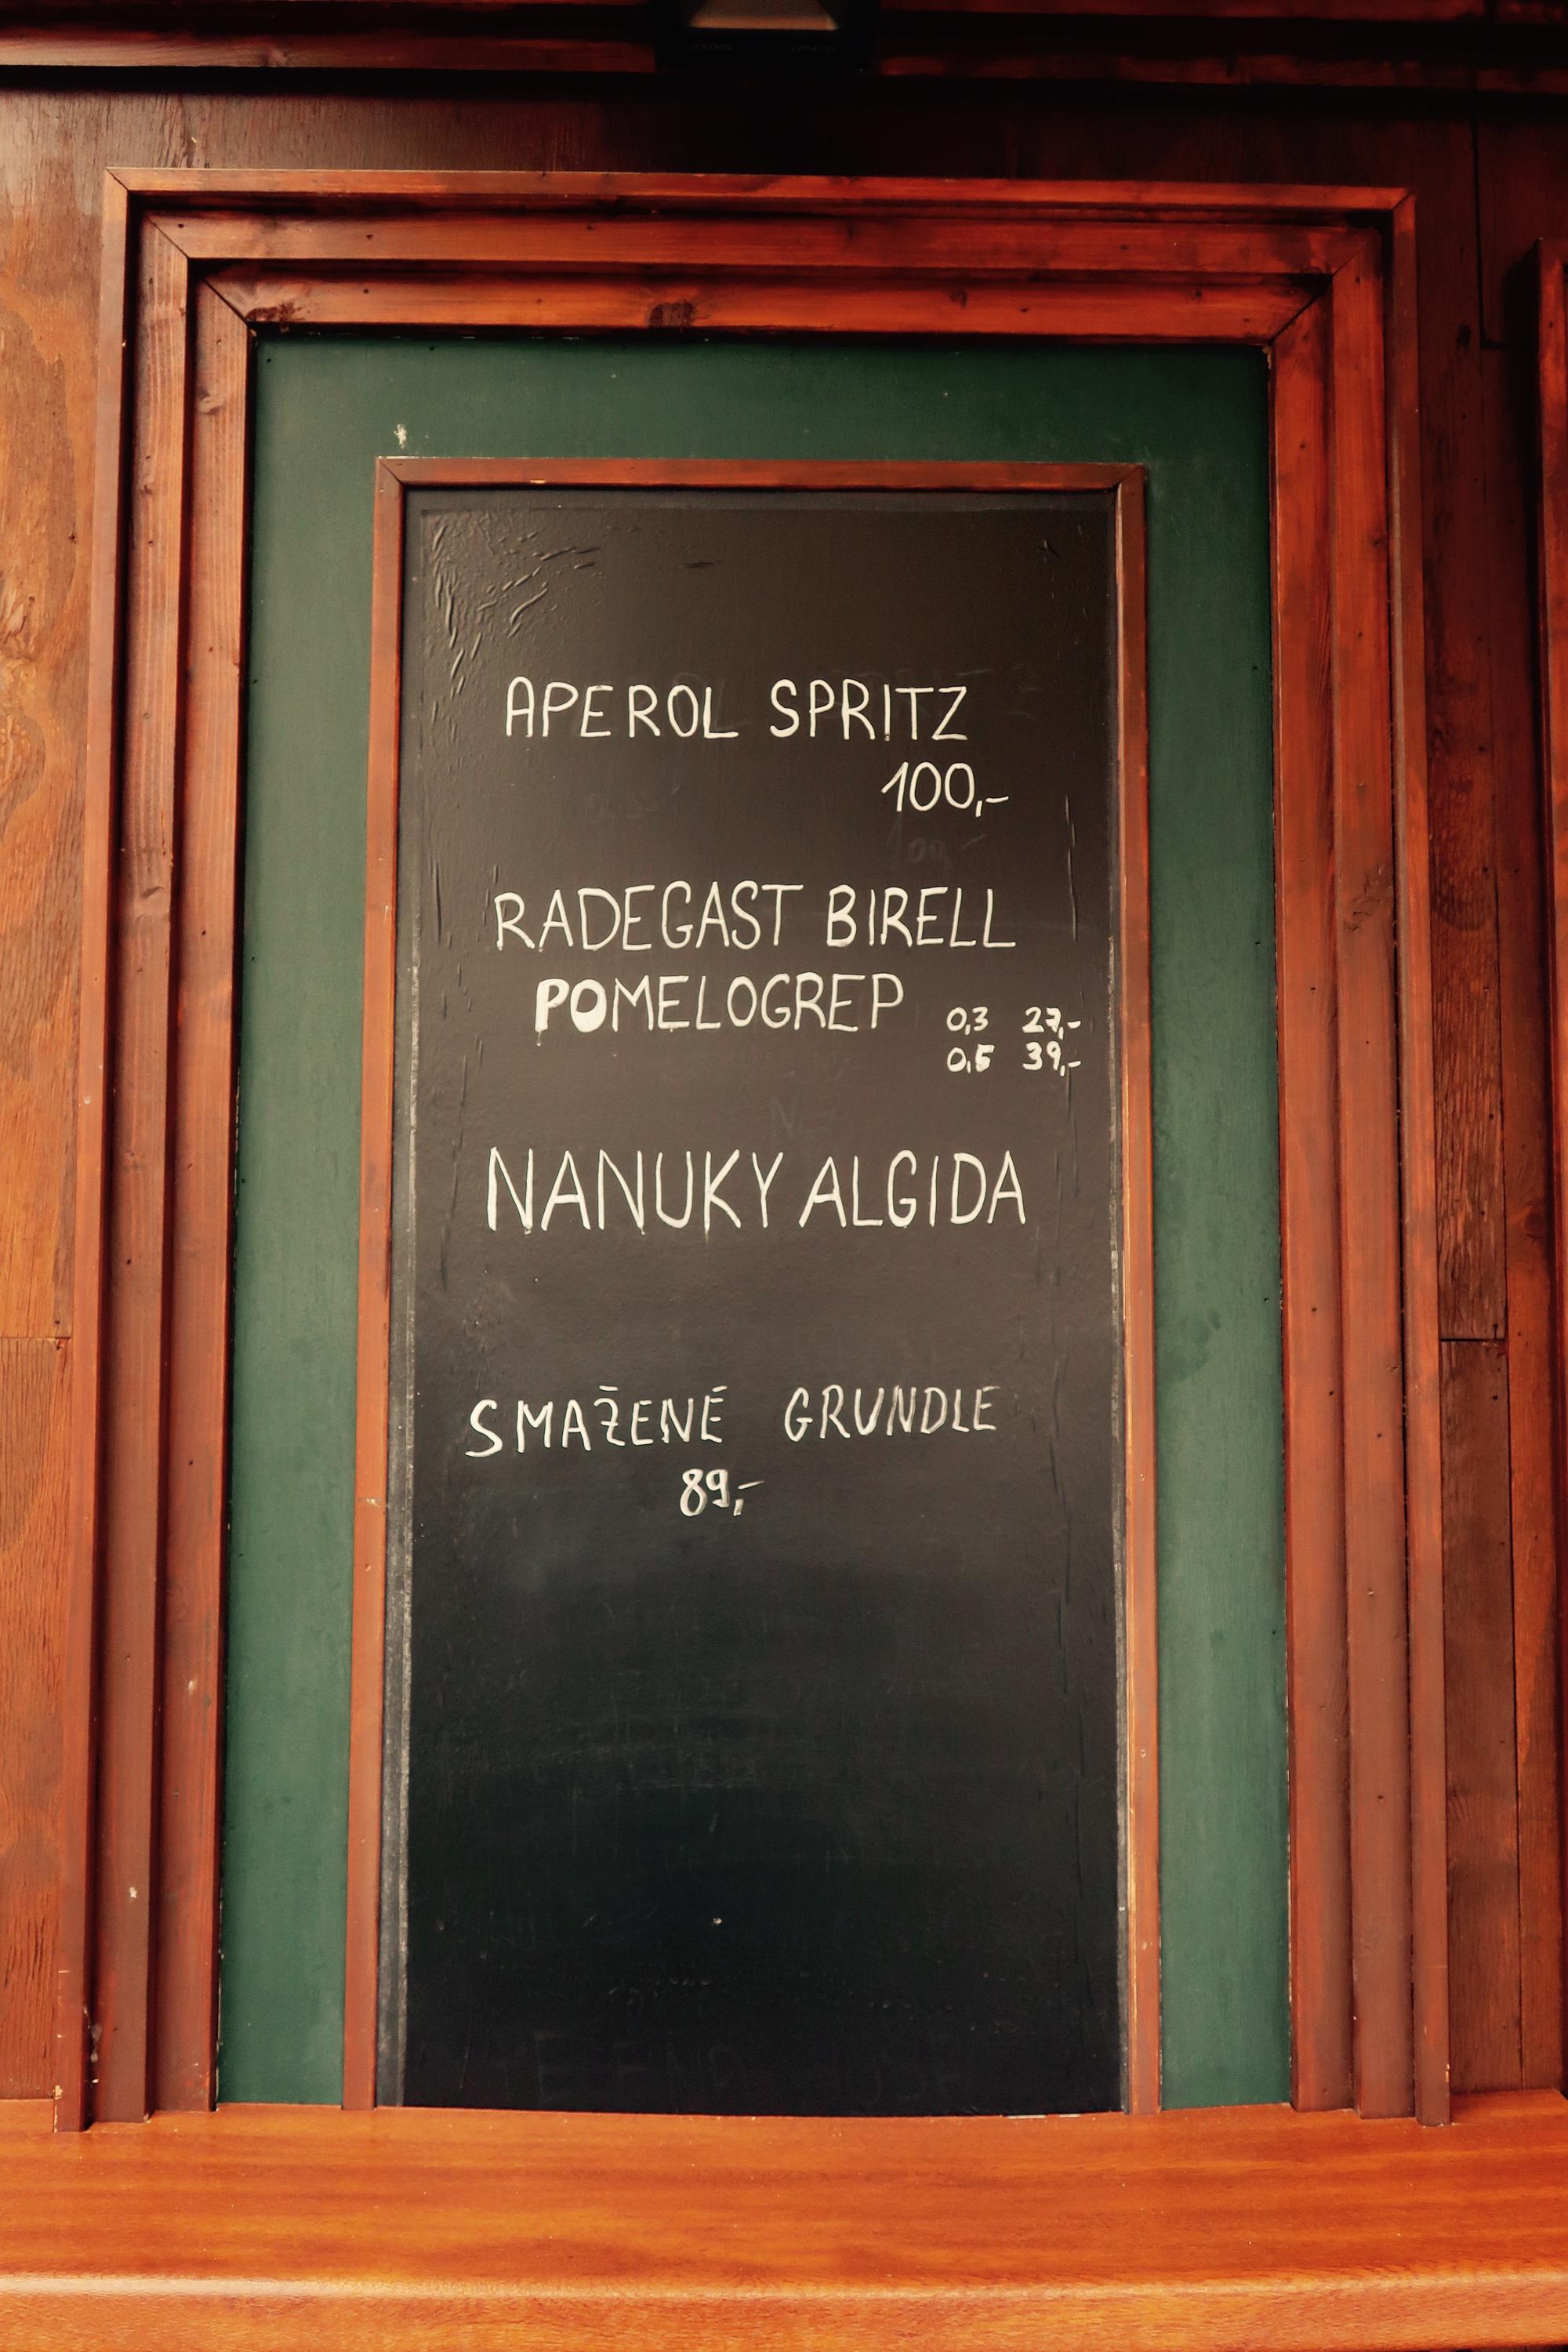 APEROL SPRITZ
100,-
RADEGAST BIRELL
POMELOGREP
0,3 27,-
0,5 39,-
NANUKY ALGIDA
SMAŽENÉ GRUNDLE
89,-